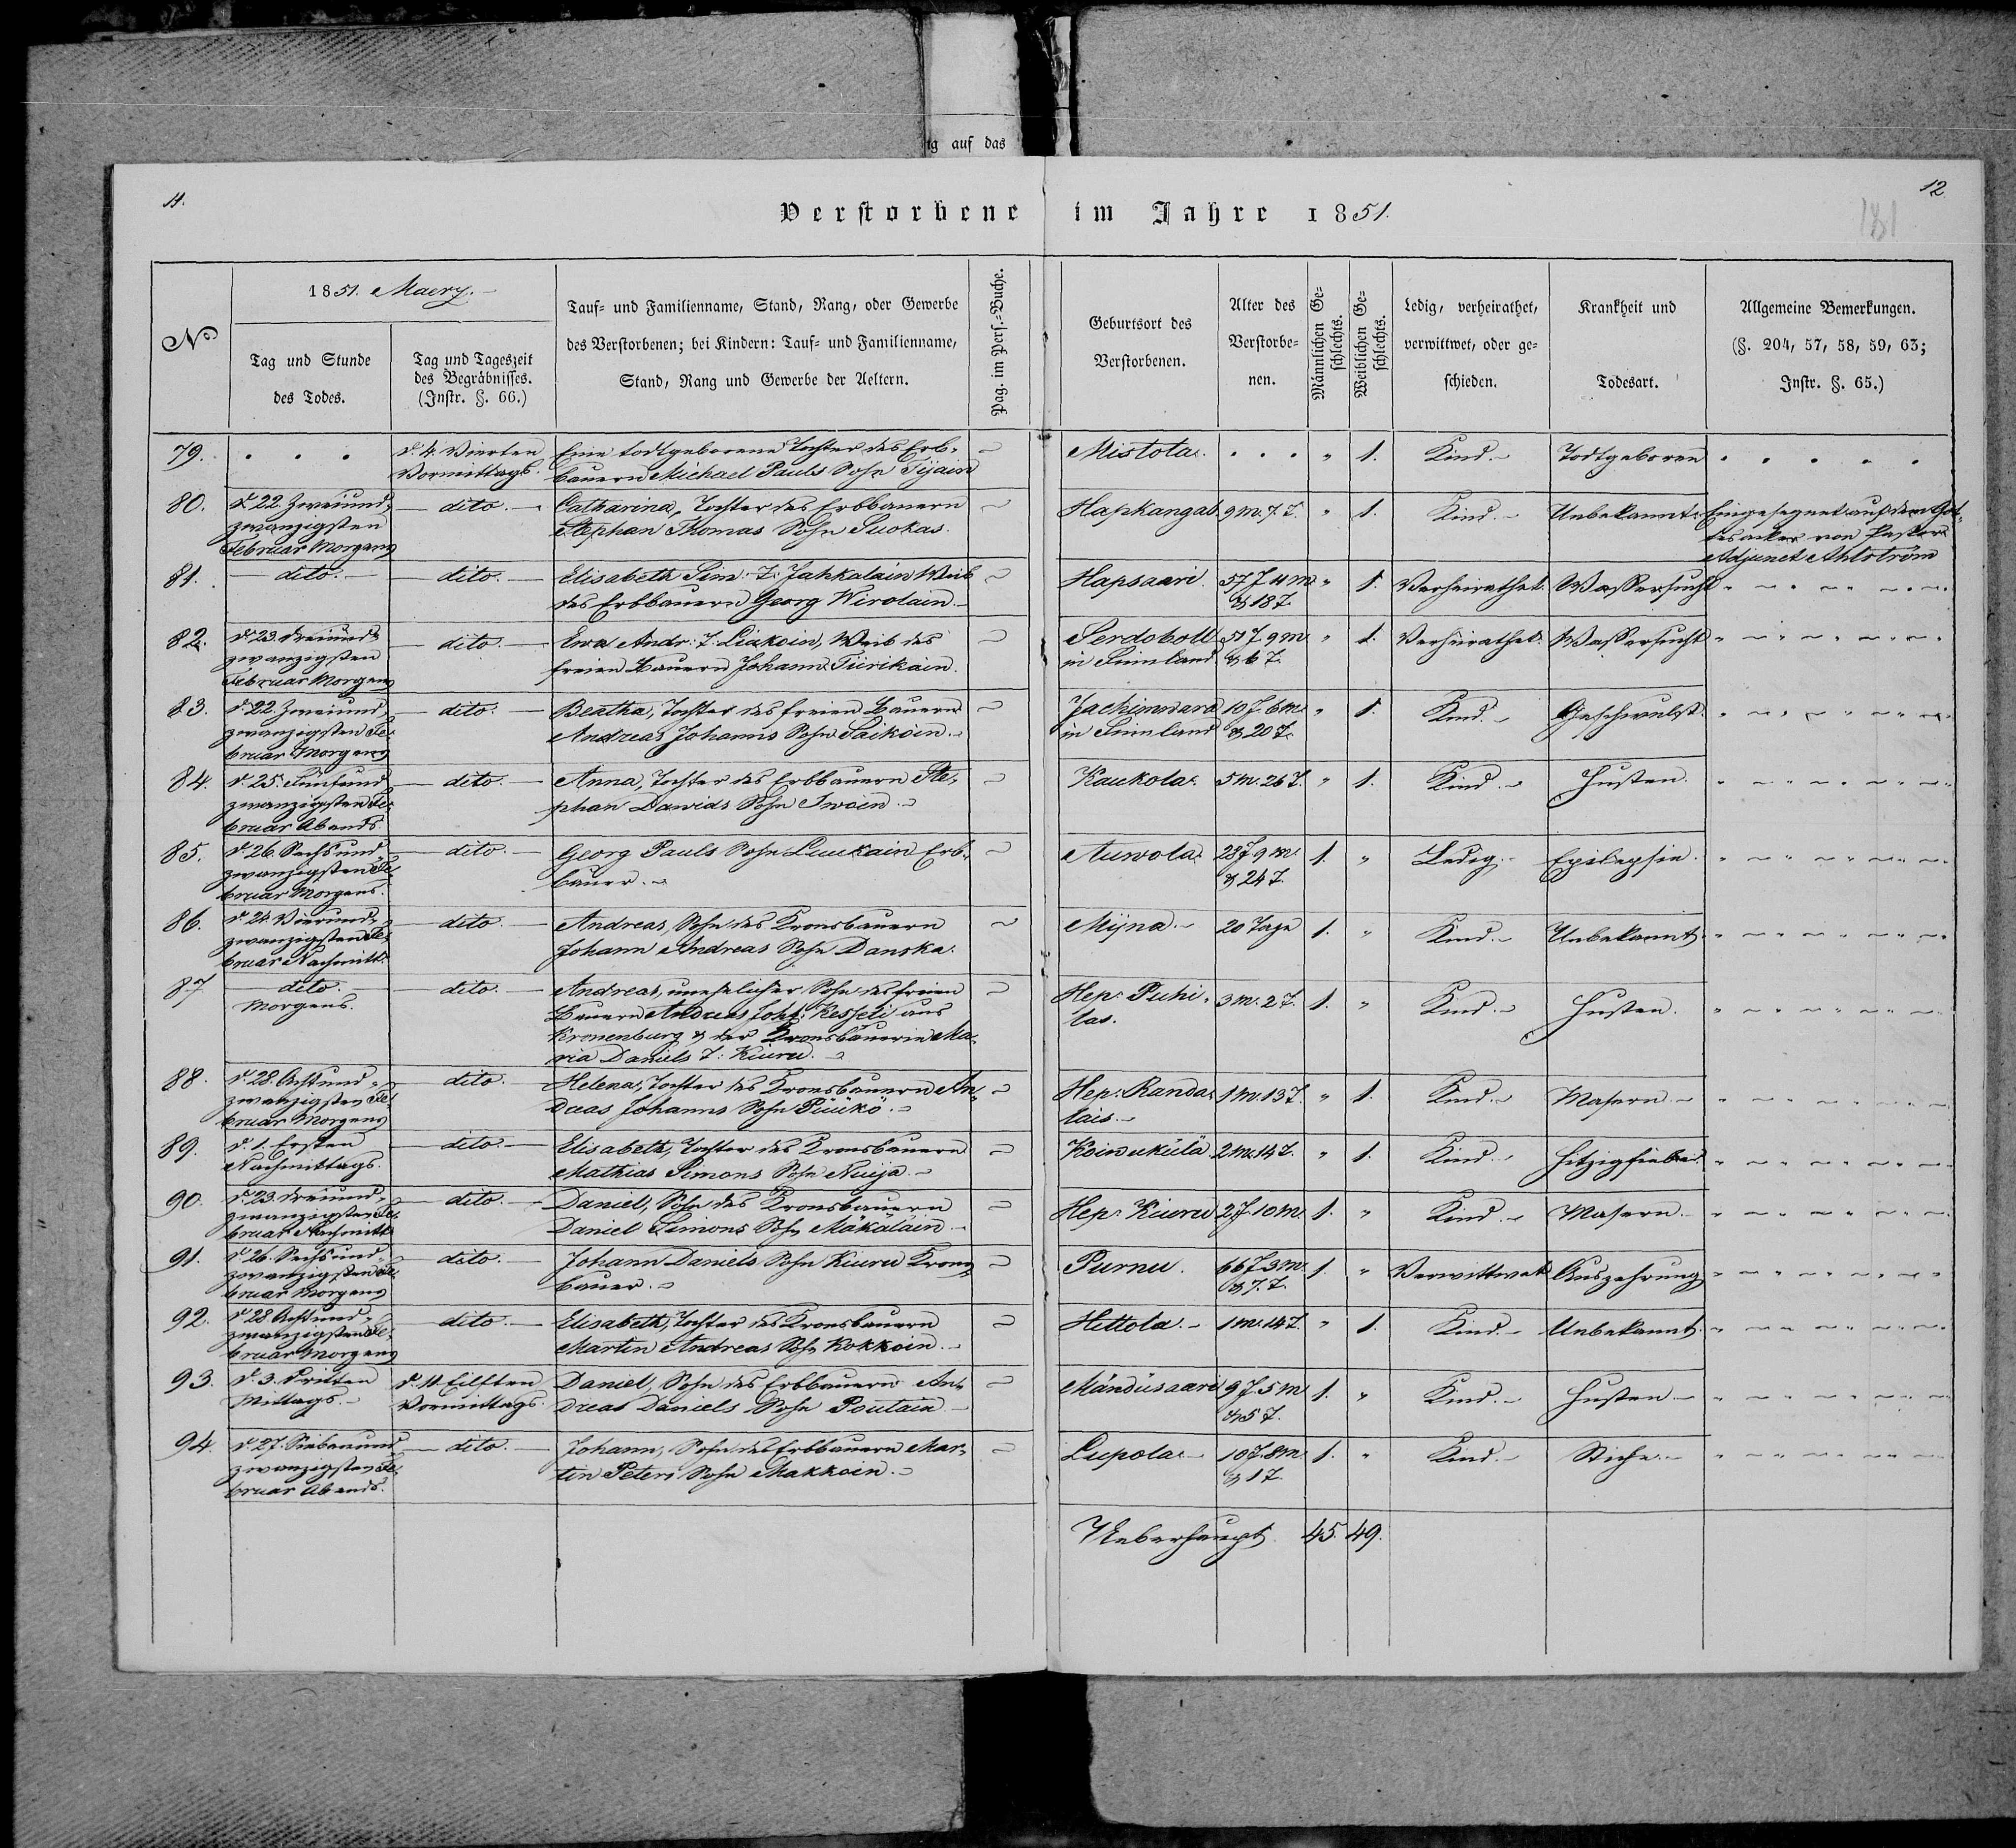 tg auf das
11.
12.
181
Verstorbene im Jahre 1851.
No
1851. Maerz.
Tag und Stunde
des Todes.
Tag und Tageszeit
des Begräbnisses.
(Instr. §. 66.)
Tauf= und Familienname, Stand, Rang, oder Gewerbe
des Verstorbenen; bei Kindern: Tauf= und Familienname,
Stand, Rang und Gewerbe der Aeltern.
Pag. im Pers.=Buche.
Geburtsort des
Verstorbenen.
Alter des
Verstorbe=
nen.
Männlichen Ge=
schlechts.
Weiblichen Ge=
schlechts.
Ledig, verheirathet,
verwittwet, oder ge=
schieden.
Krankheit und
Todesart.
Allgemeine Bemerkungen.
(§. 204, 57, 58, 59, 63;
Instr. §. 65.)
79.
d. 4. Vierten
Vormittags.
Eine todtgeborene Tochter des Erb-
bauern Michael Pauls Sohn Tijain
Mistola.
" 1.
Kind.
Todtgeboren
80.
d. 22. Zweiund-
zwanzigsten
Februar Morgens
dito.
Catharina, Tochter des Erbbauern
Stephan Thomas Sohn Suokas.
Hapkangas
9 m. 7 T.
" 1.
Kind.
Unbekannt.
Eingesegnet auf dem Got-
tesacker von Pastor
Adjunct Ahlström
81.
dito.
dito.
Elisabeth Sim: T: Jahkaläin Weib
des Erbbauern Georg Wirolain.
Hapsaari.
57 J 4 m
& 18 T.
" 1.
Verheirathet.
Wassersucht
82.
d. 23. Dreiund-
zwanzigsten
Februar Morgens
dito.
Ewa Andr: T: Liakoin, Weib des
freien Bauern Johann Tiirikain.
Serdoboll
in Finnland
51 J. 9 m
& 6 T.
" 1.
Verheirathet.
Wassersucht
83.
d. 22. Zweiund-
zwanzigsten Fe-
bruar Morgens
dito.
Beatha, Tochter des freien Bauern
Andreas Johanns Sohn Saikoin.
Jachimwara
in Finnland
10 J 6 m.
& 20 T.
" 1.
Kind.
Geschwulst.
84.
d. 25. Fünfund-
zwanzigsten Fe-
bruar Abends
dito.
Anna, Tochter des Erbbauern Ste-
phan Dawids Sohn Iwoin.
Kaukola.
5 m. 26 T.
" 1.
Kind.
Husten.
85.
d. 26. Sechsund-
zwanzigsten Fe-
bruar Morgens.
dito.
Georg Pauls Sohn Luukain Erb-
bauer.
Auwola.
28 J 9 m.
& 24 T.
1. "
Ledig.
Epilepsie.
86.
d. 24. Vierund-
zwanzigsten Fe-
bruar Nachmitt.
dito.
Andreas, Sohn des Kronsbauern
Johann Andreas Sohn Danska.
Mÿna.
20 Tage
1. "
Kind.
Unbekannt.
87
dito.
Morgens.
dito.
Andreas, unehelicher Sohn des freien
Bauern Andreas Joh: Kesseli aus
Kronenburg & der Kronsbäuerin Ma-
ria Daniels T: Kiuru.
Hep: Puhi-
las.
3 m. 2 T.
1. "
Kind.
Husten.
88.
d. 28. Achtund-
zwanzigsten Fe-
bruar Morgens
dito.
Helena, Tochter des Kronsbauern An-
dreas Johanns Sohn Püükö.
Hep: Randa-
läis.
1 m. 13 T.
" 1.
Kind.
Masern.
89.
d. 1. Ersten
Nachmittags.
dito.
Elisabeth, Tochter des Kronsbauern
Mathias Simons Sohn Nuija.
Koiwuküla
2 m. 14 T.
" 1.
Kind.
Hitzigfieber.
90.
d. 23. Dreiund-
zwanzigsten Fe-
bruar Nachmitt.
dito.
Daniel, Sohn des Kronsbauern
Daniel Simons Sohn Mäkäläin.
Hep: Kiuru
2 J 10 m.
1. "
Kind.
Masern.
91.
d. 26. Sechsund-
zwanzigsten Fe-
bruar Morgens
dito.
Johann Daniels Sohn Kiuru Krons-
bauer.
Purnu.
66 J 3 m.
& 7. T.
1. "
Verwittwet
Auszehrung
92.
d. 28 Achtund-
zwanzigsten Fe-
bruar Morgens
dito.
Elisabeth, Tochter des Kronsbauern
Martin Andreas Sohn Kokkoin.
Hettola.
1 m. 14 T.
" 1.
Kind.
Unbekannt.
93.
d. 3. Dritten
Mittags.
d. 11. Eilften
Vormittags.
Daniel, Sohn des Erbbauern An-
dreas Daniels Sohn Poutain
Mändüsaari
9 J. 5 m
& 5 T.
1. "
Kind.
Husten.
94.
d. 27. Siebenund-
zwanzigsten Fe-
bruar Abends.
dito.
Johann, Sohn des Erbbauern Mar-
tin Peters Sohn Makkoin.
Lupola.
10 J. 8 m.
& 1 T.
1. "
Kind.
Stiche.
Ueberhaupt. 45. 49.